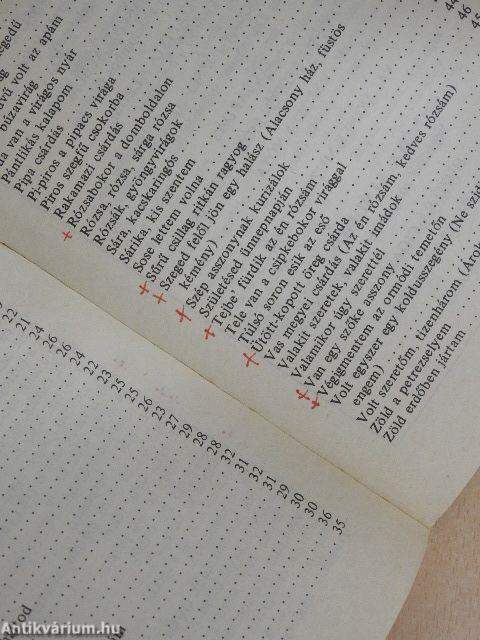 hegedű
volt az apám
búzavirág
van a virágos nyár
Pántlikás kalapom
Pipa csárdás
Pi-piros a pipacs virága
Piros szegfű csokorba
Rakamazi csárdás
+ Rózsabokor a domboldalon
Rózsa, rózsa, sárga rózsa
Rózsák, gyöngyvirágok
Sára, kacskaringós
Sárika, kis szentem
Sose lettem volna
+ Sűrű csillag ritkán ragyog
+ Szeged felől jön egy halász (Alacsony ház, füstös
kémény)
+ Szép asszonynak kurizálok
Születésed ünnepnapján
+ Tejbe' fürdik az én rózsám
Tele van a csipkebokor virággal
Túlsó soron esik az eső
+ Ütött-kopott öreg csárda
Vas megyei csárdás (Az én rózsám, kedves rózsám)
Valakit szeretek, valakit imádok
Valamikor úgy szerettél
+ Van egy szőke asszony
+ Végigmentem az ormódi temetőn
Volt egyszer egy kolduszegény (Ne szidj
engem)
Volt szeretőm, tizenhárom (Árok
Zöld a petrezselyem
Zöld erdőben jártam
44
46
45
22
21
24
26
26
24
22
23
25
25
26
23
27
29
28
28
32
31
32
31
29
30
30
36
35
od
Antikvárium.hu